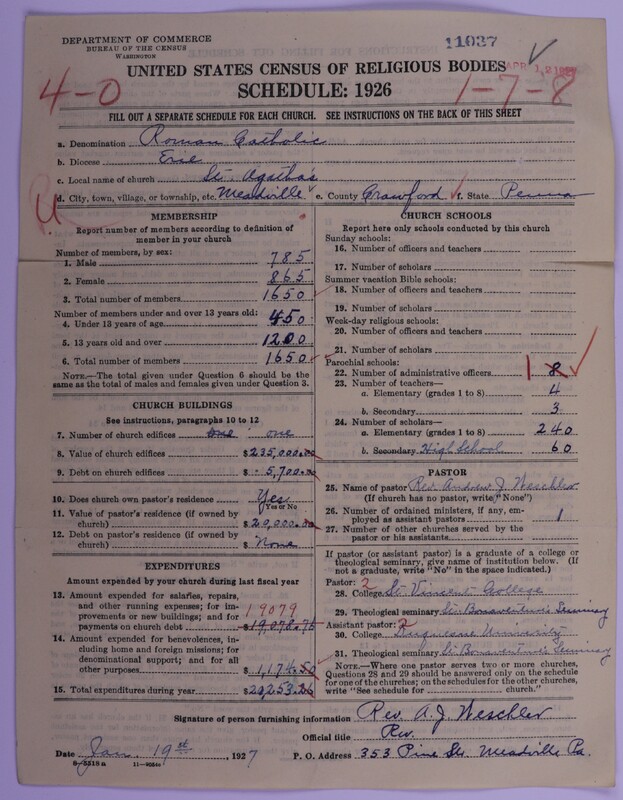 DEPARTMENT OF COMMERCE
BUREAU OF THE CENSUS
WASHINGTON
11037
UNITED STATES CENSUS OF RELIGIOUS BODIES
SCHEDULE: 1926
4-0
1-7-8
FILL OUT A SEPARATE SCHEDULE FOR EACH CHURCH. SEE INSTRUCTIONS ON THE BACK OF THIS SHEET
a. Denomination Roman Catholic
b. Diocese Erie
c. Local name of church St. Agatha's
d. City, town, village, or township, etc. Meadville e. County Crawford f. State Penna
MEMBERSHIP
Report number of members according to definition of
member in your church
Number of members, by sex:
1. Male 785
2. Female 865
3. Total number of members 1650
Number of members under and over 13 years old:
4. Under 13 years of age 450
5. 13 years old and over 1200
6. Total number of members 1650
NOTE.—The total given under Question 6 should be
same as the total of males and females given under Question 3.
CHURCH BUILDINGS
See instructions, paragraphs 10 to 12
7. Number of church edifices one one
8. Value of church edifices $235,000.00
9. Debt on church edifices $5,700.00
10. Does church own pastor's residence Yes
Yes or No
11. Value of pastor's residence (if owned by
church) $20,000.00
12. Debt on pastor's residence (if owned by
church) $ None
EXPENDITURES
Amount expended by your church during last fiscal year
13. Amount expended for salaries, repairs,
and other running expenses; for im-
provements or new buildings; and for
payments on church debt 19079 $19,078.76
14. Amount expended for benevolences, in-
cluding home and foreign missions; for
denominational support; and for all
other purposes $1,174.50
15. Total expenditures during year $20,253.26
CHURCH SCHOOLS
Report here only schools conducted by this church
Sunday schools:
16. Number of officers and teachers
17. Number of scholars
Summer vacation Bible schools:
18. Number of officers and teachers
19. Number of scholars
Week-day religious schools:
20. Number of officers and teachers
21. Number of scholars
Parochial schools:
22. Number of administrative officers 1 8
23. Number of teachers—
a. Elementary (grades 1 to 8) 4
b. Secondary 3
24. Number of scholars—
a. Elementary (grades 1 to 8) 240
b. Secondary High School 60
PASTOR
25. Name of pastor Rev. Andrew J. Weschler
(If church has no pastor, write "None")
26. Number of ordained ministers, if any, em-
ployed as assistant pastors 1
27. Number of other churches served by the
pastor or his assistants
If pastor (or assistant pastor) is a graduate of a college or
theological seminary, give name of institution below. (If
not a graduate, write "No" in the space indicated.)
Pastor: 2
28. College St Vincent College
29. Theological seminary St Bonaventure's Seminary
Assistant pastor: 2
30. College Duquesne University
31. Theological seminary St Bonaventure's Seminary
NOTE.—Where one pastor serves two or more churches,
Questions 28 and 29 should be answered only on the schedule
for one of the churches; on the schedules for the other churches,
write "See schedule for church."
Signature of person furnishing information Rev. A. J. Weschler
Official title Rev.
Date Jan. 19st, 1927 P. O. Address 353 Pine St. Meadville Pa.
8-5318a